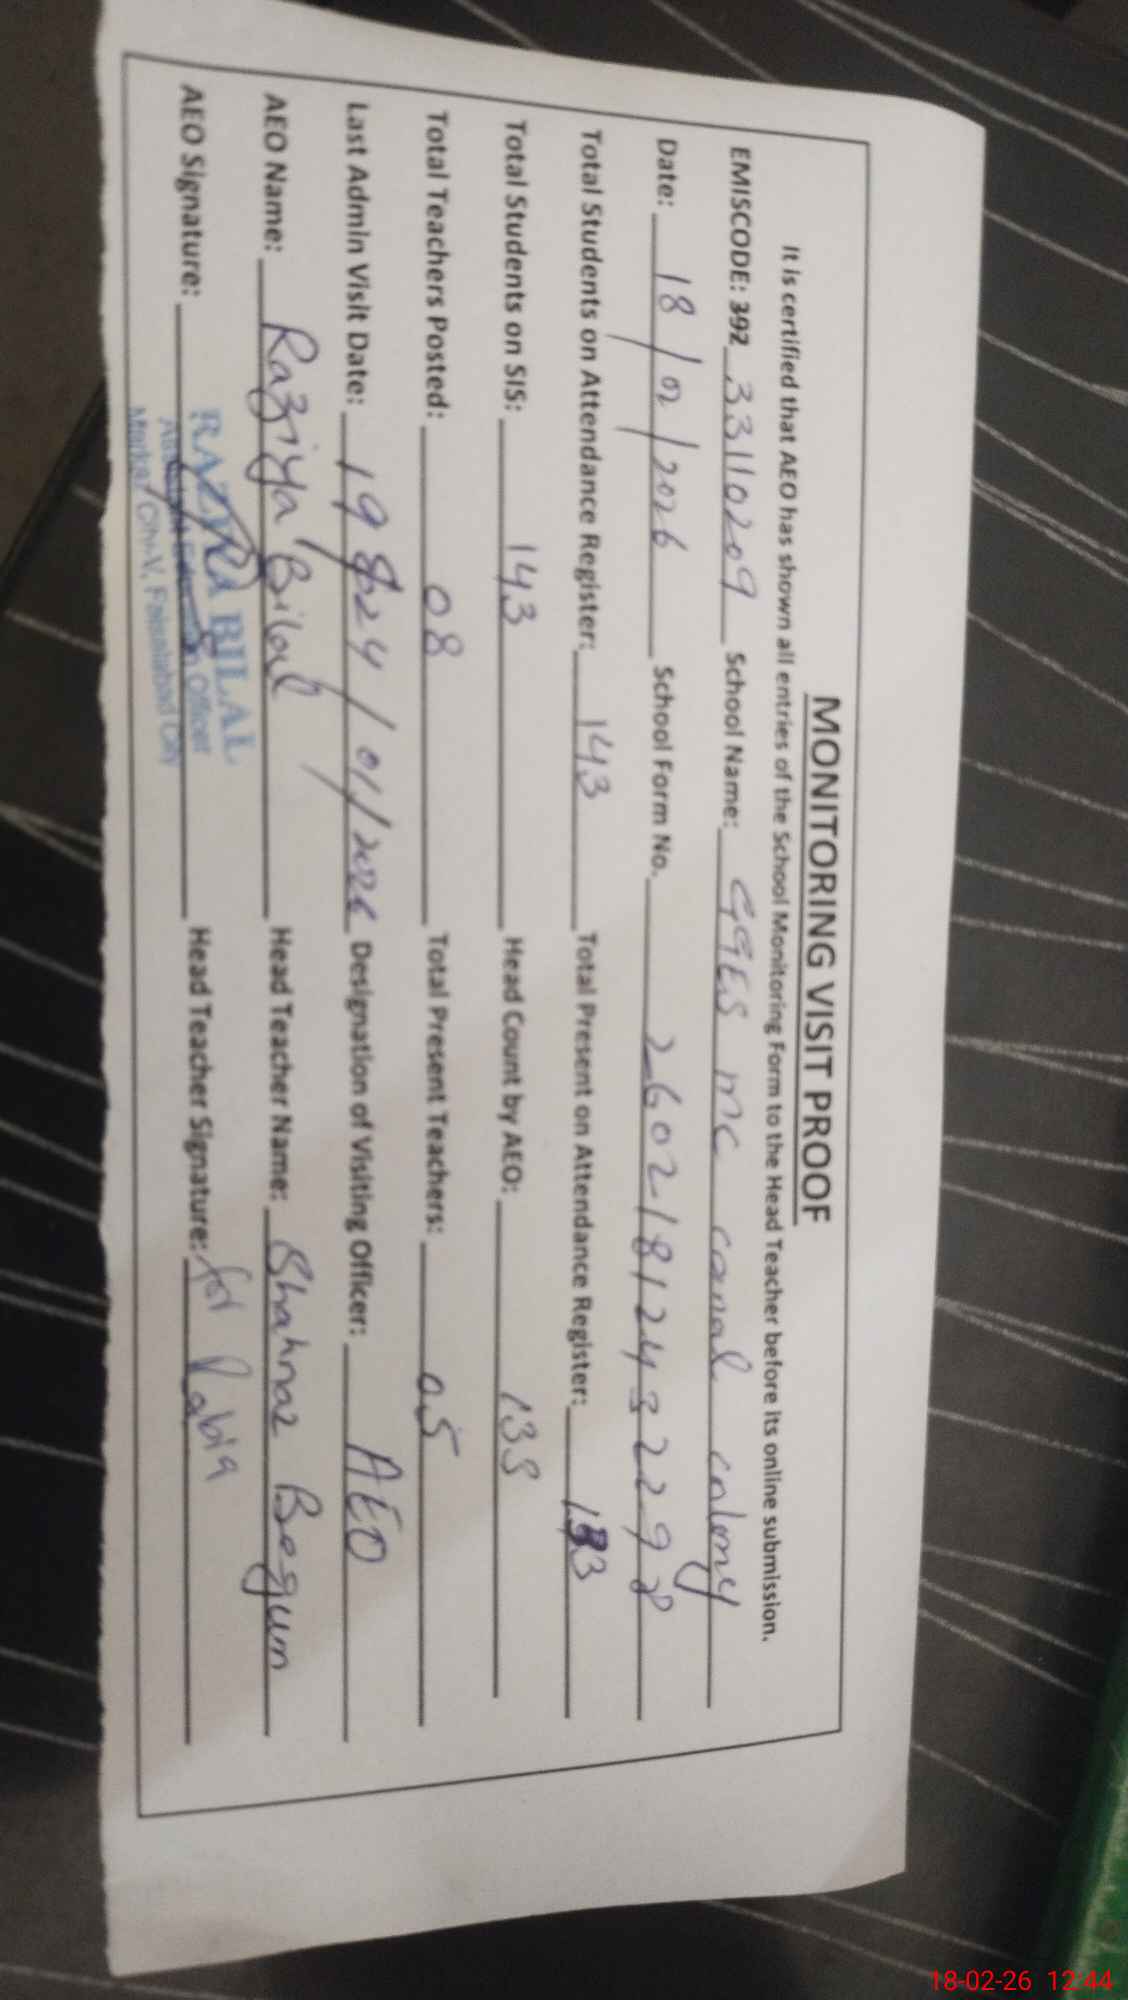 MONITORING VISIT PROOF
It is certified that AEO has shown all entries of the School Monitoring Form to the Head Teacher before its online submission.
EMISCODE: 392 33110209 School Name: GGES MC canal colony
Date: 18/02/2026 School Form No. 26021812432298
Total Students on Attendance Register: 143 Total Present on Attendance Register: 133
Total Students on SIS: 143 Head Count by AEO: 133
Total Teachers Posted: 08 Total Present Teachers: 05
Last Admin Visit Date: 24/01/2026 Designation of Visiting Officer: AEO
AEO Name: Raziya Bilal Head Teacher Name: Shahnaz Begum
AEO Signature: Head Teacher Signature: for Rabia
BILAL
Officer
Markaz City-V, Faisalabad City
18-02-26 12:44